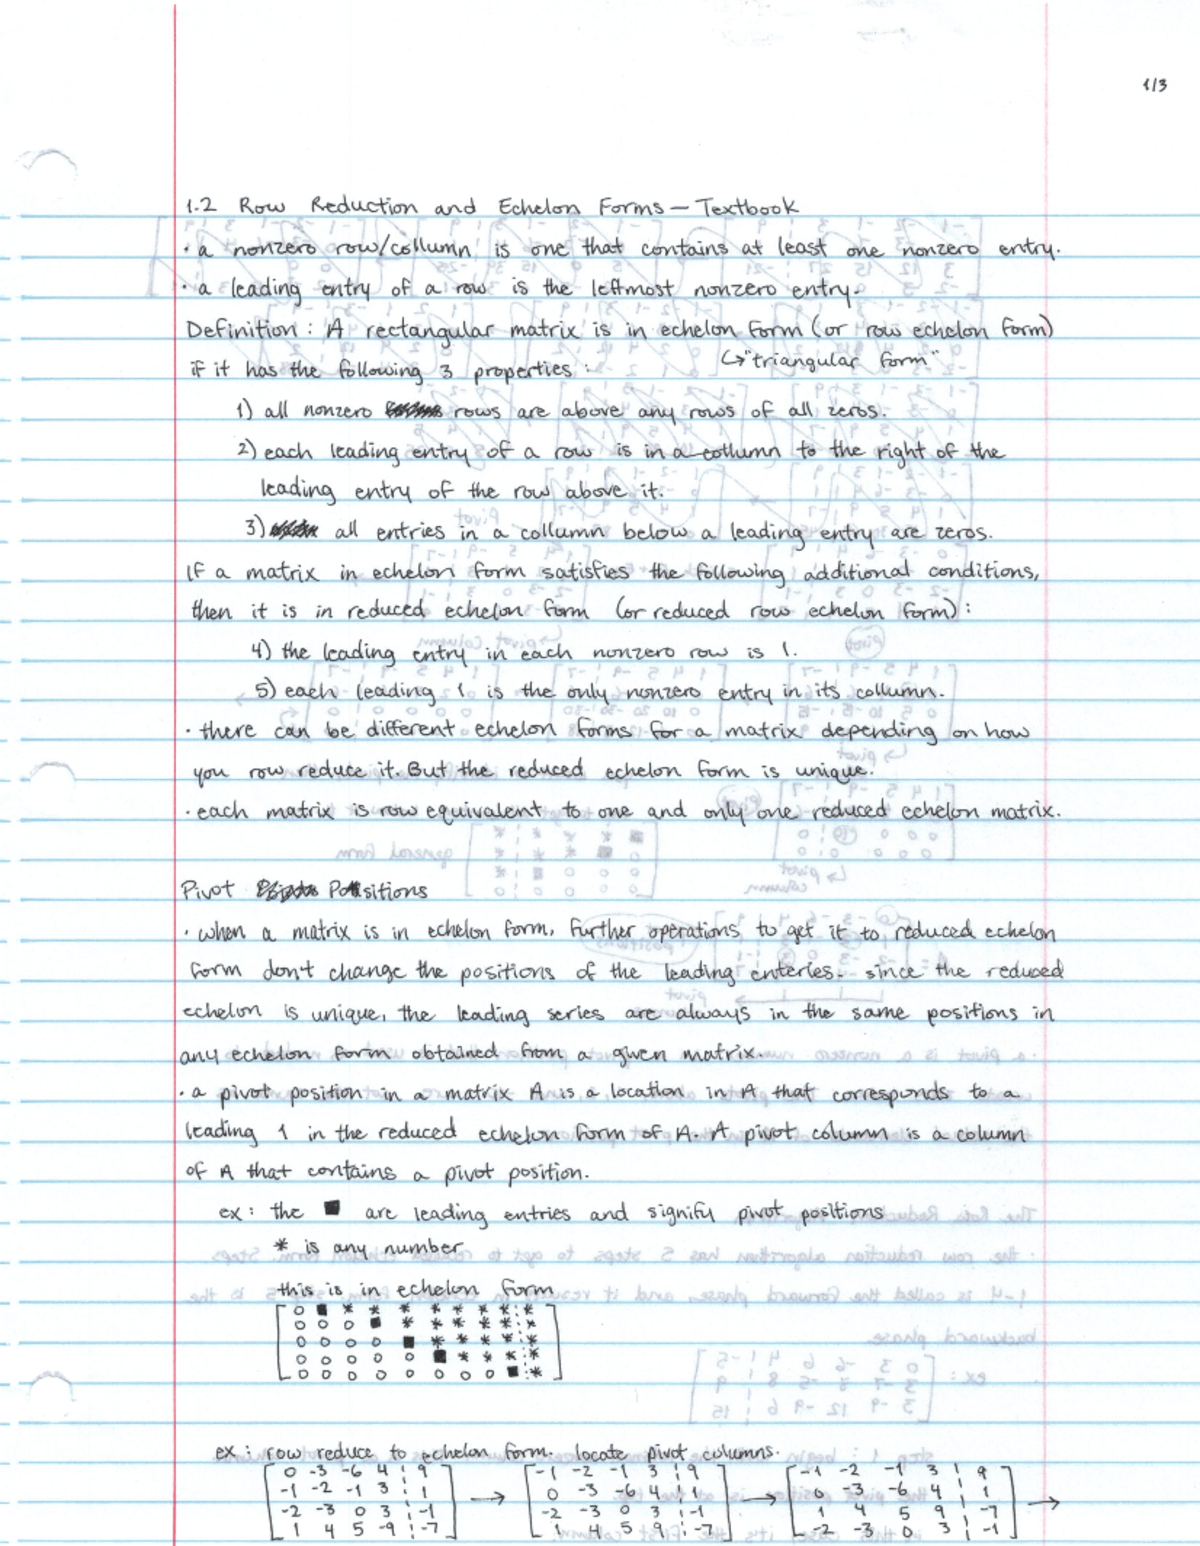 1/3
1.2 Row Reduction and Echelon Forms — Textbook
· a nonzero row/collumn is one that contains at least one nonzero entry.
· a leading entry of a row is the leftmost nonzero entry.
Definition: A rectangular matrix is in echelon form (or row echelon form)
↳ "triangular form"
if it has the following 3 properties:
1) all nonzero rows are above any rows of all zeros.
2) each leading entry of a row is in a collumn to the right of the
leading entry of the row above it.
3) all entries in a collumn below a leading entry are zeros.
If a matrix in echelon form satisfies the following additional conditions,
then it is in reduced echelon form (or reduced row echelon form):
4) the leading entry in each nonzero row is 1.
5) each leading 1 is the only nonzero entry in its collumn.
· there can be different echelon forms for a matrix depending on how
you row reduce it. But the reduced echelon form is unique.
· each matrix is row equivalent to one and only one reduced echelon matrix.
Pivot Positions
· when a matrix is in echelon form, further operations to get it to reduced echelon
form don't change the positions of the leading enteries. since the reduced
echelon is unique, the leading series are always in the same positions in
any echelon form obtained from a given matrix.
· a pivot position in a matrix A is a location in A that corresponds to a
leading 1 in the reduced echelon form of A. A pivot column is a column
of A that contains a pivot position.
ex: the ■ are leading entries and signify pivot positions
* is any number
this is in echelon form
0 ■ * * * * * * * ¦ *
0 0 0 ■ * * * * * ¦ *
0 0 0 0 ■ * * * * ¦ *
0 0 0 0 0 ■ * * * ¦ *
0 0 0 0 0 0 0 0 ■ ¦ *
ex: row reduce to echelon form. locate pivot columns.
[0 -3 -6 4 ¦ 9] → [-1 -2 -1 3 ¦ 9] → [-1 -2 -1 3 ¦ 9] →
[-1 -2 -1 3 ¦ 1] [0 -3 -6 4 ¦ 1] [0 -3 -6 4 ¦ 1]
[-2 -3 0 3 ¦ -1] [-2 -3 0 3 ¦ -1] [1 4 5 9 ¦ -7]
[1 4 5 -9 ¦ -7] [1 4 5 9 ¦ -7] [-2 -3 0 3 ¦ -1]